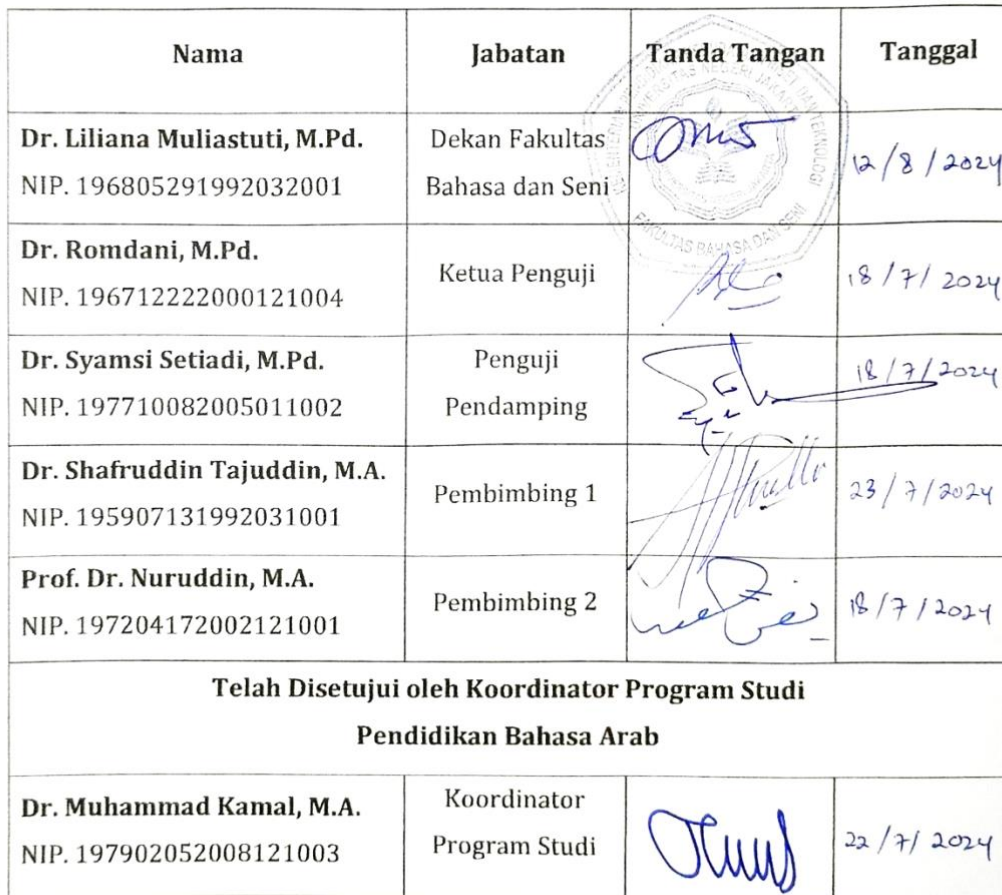 Nama Jabatan Tanda Tangan Tanggal
Dr. Liliana Muliastuti, M.Pd.
NIP. 196805291992032001
Dekan Fakultas
Bahasa dan Seni
12/8/2024
Dr. Romdani, M.Pd.
NIP. 196712222000121004
Ketua Penguji
18/7/2024
Dr. Syamsi Setiadi, M.Pd.
NIP. 197710082005011002
Penguji
Pendamping
18/7/2024
Dr. Shafruddin Tajuddin, M.A.
NIP. 195907131992031001
Pembimbing 1
23/7/2024
Prof. Dr. Nuruddin, M.A.
NIP. 197204172002121001
Pembimbing 2
18/7/2024
Telah Disetujui oleh Koordinator Program Studi
Pendidikan Bahasa Arab
Dr. Muhammad Kamal, M.A.
NIP. 197902052008121003
Koordinator
Program Studi
22/7/2024
UNIVERSITAS NEGERI JAKARTA
FAKULTAS BAHASA DAN SENI